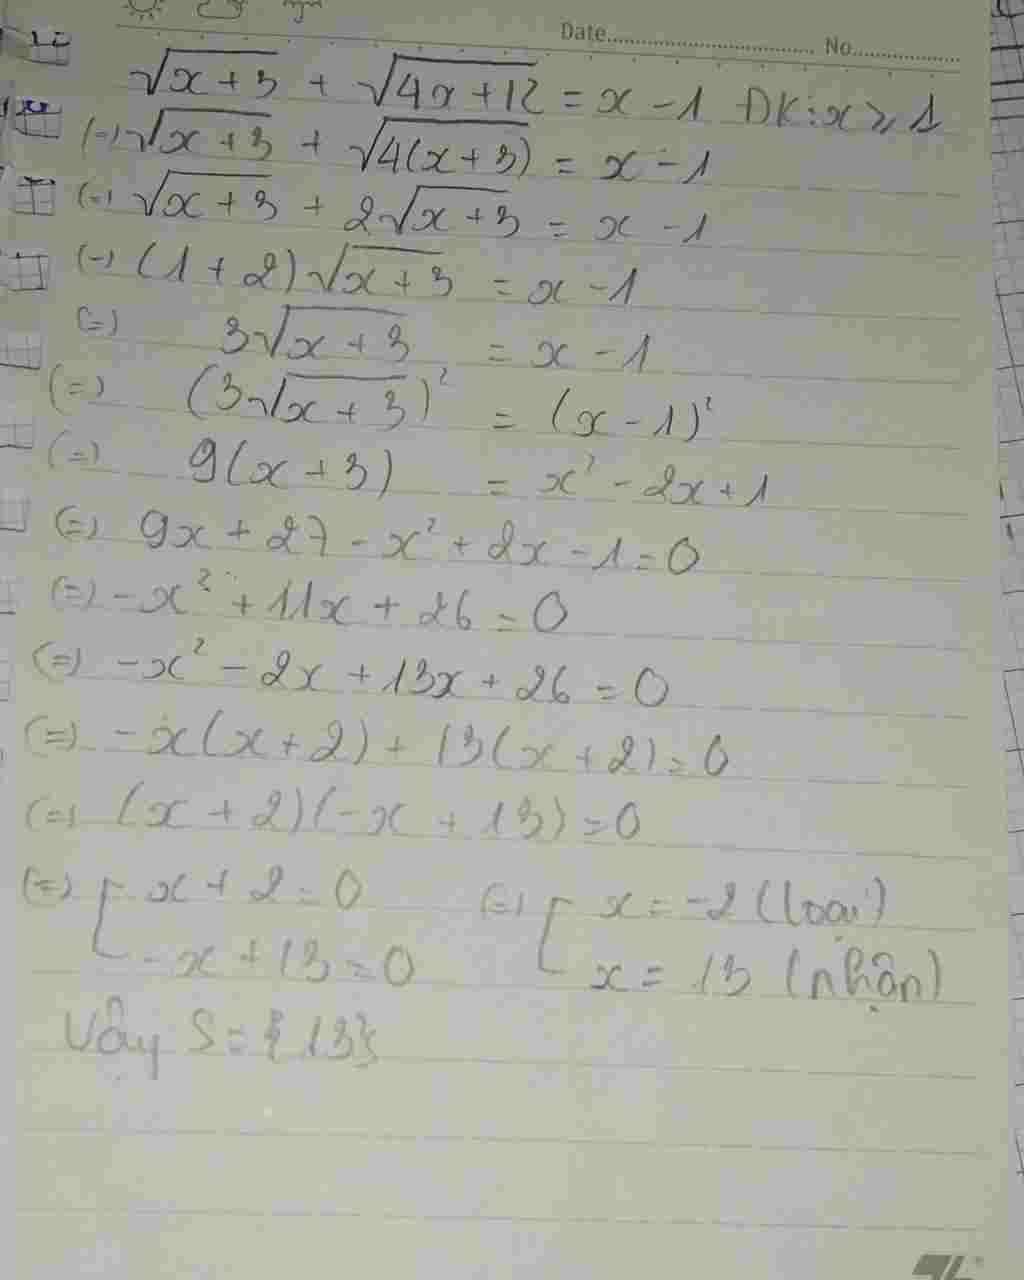 Date........ No........
√(x+3) + √(4x+12) = x - 1 ĐK: x ⩾ 1
(=) √(x+3) + √(4(x+3)) = x - 1
(=) √(x+3) + 2√(x+3) = x - 1
(=) (1+2)√(x+3) = x - 1
(=) 3√(x+3) = x - 1
(=) (3√(x+3))² = (x-1)²
(=) 9(x+3) = x² - 2x + 1
(=) 9x + 27 - x² + 2x - 1 = 0
(=) -x² + 11x + 26 = 0
(=) -x² - 2x + 13x + 26 = 0
(=) -x(x+2) + 13(x+2) = 0
(=) (x+2)(-x+13) = 0
(=) [ x + 2 = 0 (=) [ x = -2 (loại)
-x + 13 = 0 x = 13 (nhận)
Vậy S = {13}